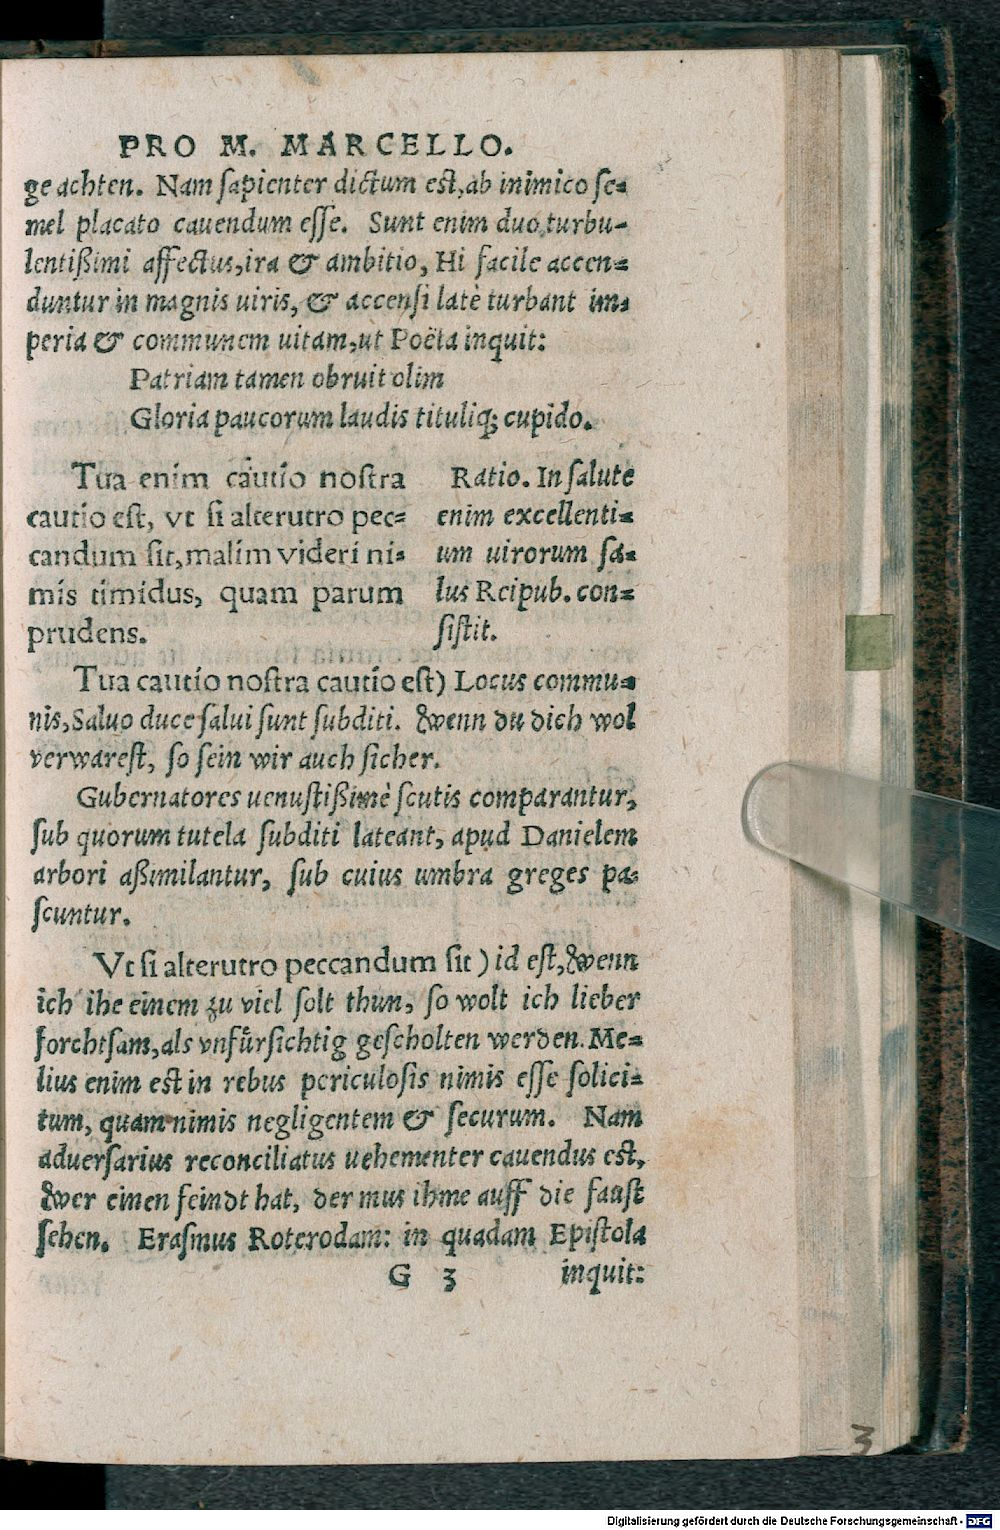 PRO M. MARCELLO.
ge achten. Nam ſapienter dictum eſt, ab inimico ſe=
mel placato cauendum eſſe. Sunt enim duo turbu-
lentißimi affectus, ira & ambitio, Hi facile accen=
duntur in magnis uiris, & accenſi latè turbant im=
peria & communem uitam, ut Poëta inquit:
Patriam tamen obruit olim
Gloria paucorum laudis tituliq; cupido.
Tua enim cautio noſtra
cautio eſt, vt ſi alterutro pec=
candum ſit, malim videri ni=
mis timidus, quam parum
prudens.
Ratio. In ſalute
enim excellenti=
um uirorum ſa=
lus Reipub. con=
ſiſtit.
Tua cautio noſtra cautio eſt) Locus commu=
nis, Saluo duce ſalui ſunt ſubditi. Wenn du dich wol
verwareſt, ſo ſein wir auch ſicher.
Gubernatores uenuſtißimè ſcutis comparantur,
ſub quorum tutela ſubditi lateant, apud Danielem
arbori aßimilantur, ſub cuius umbra greges pa=
ſcuntur.
Vt ſi alterutro peccandum ſit) id eſt, Wenn
ich ihe einem zu viel ſolt thun, ſo wolt ich lieber
forchtſam, als vnfürſichtig geſcholten werden. Me=
lius enim eſt in rebus periculoſis nimis eſſe ſolici=
tum, quam nimis negligentem & ſecurum. Nam
aduerſarius reconciliatus uehementer cauendus eſt,
Wer einen feindt hat, der mus ihme auff die fauſt
ſehen. Eraſmus Roterodam: in quadam Epiſtola
G 3 inquit:
3
Digitalisierung gefördert durch die Deutsche Forschungsgemeinschaft - DFG